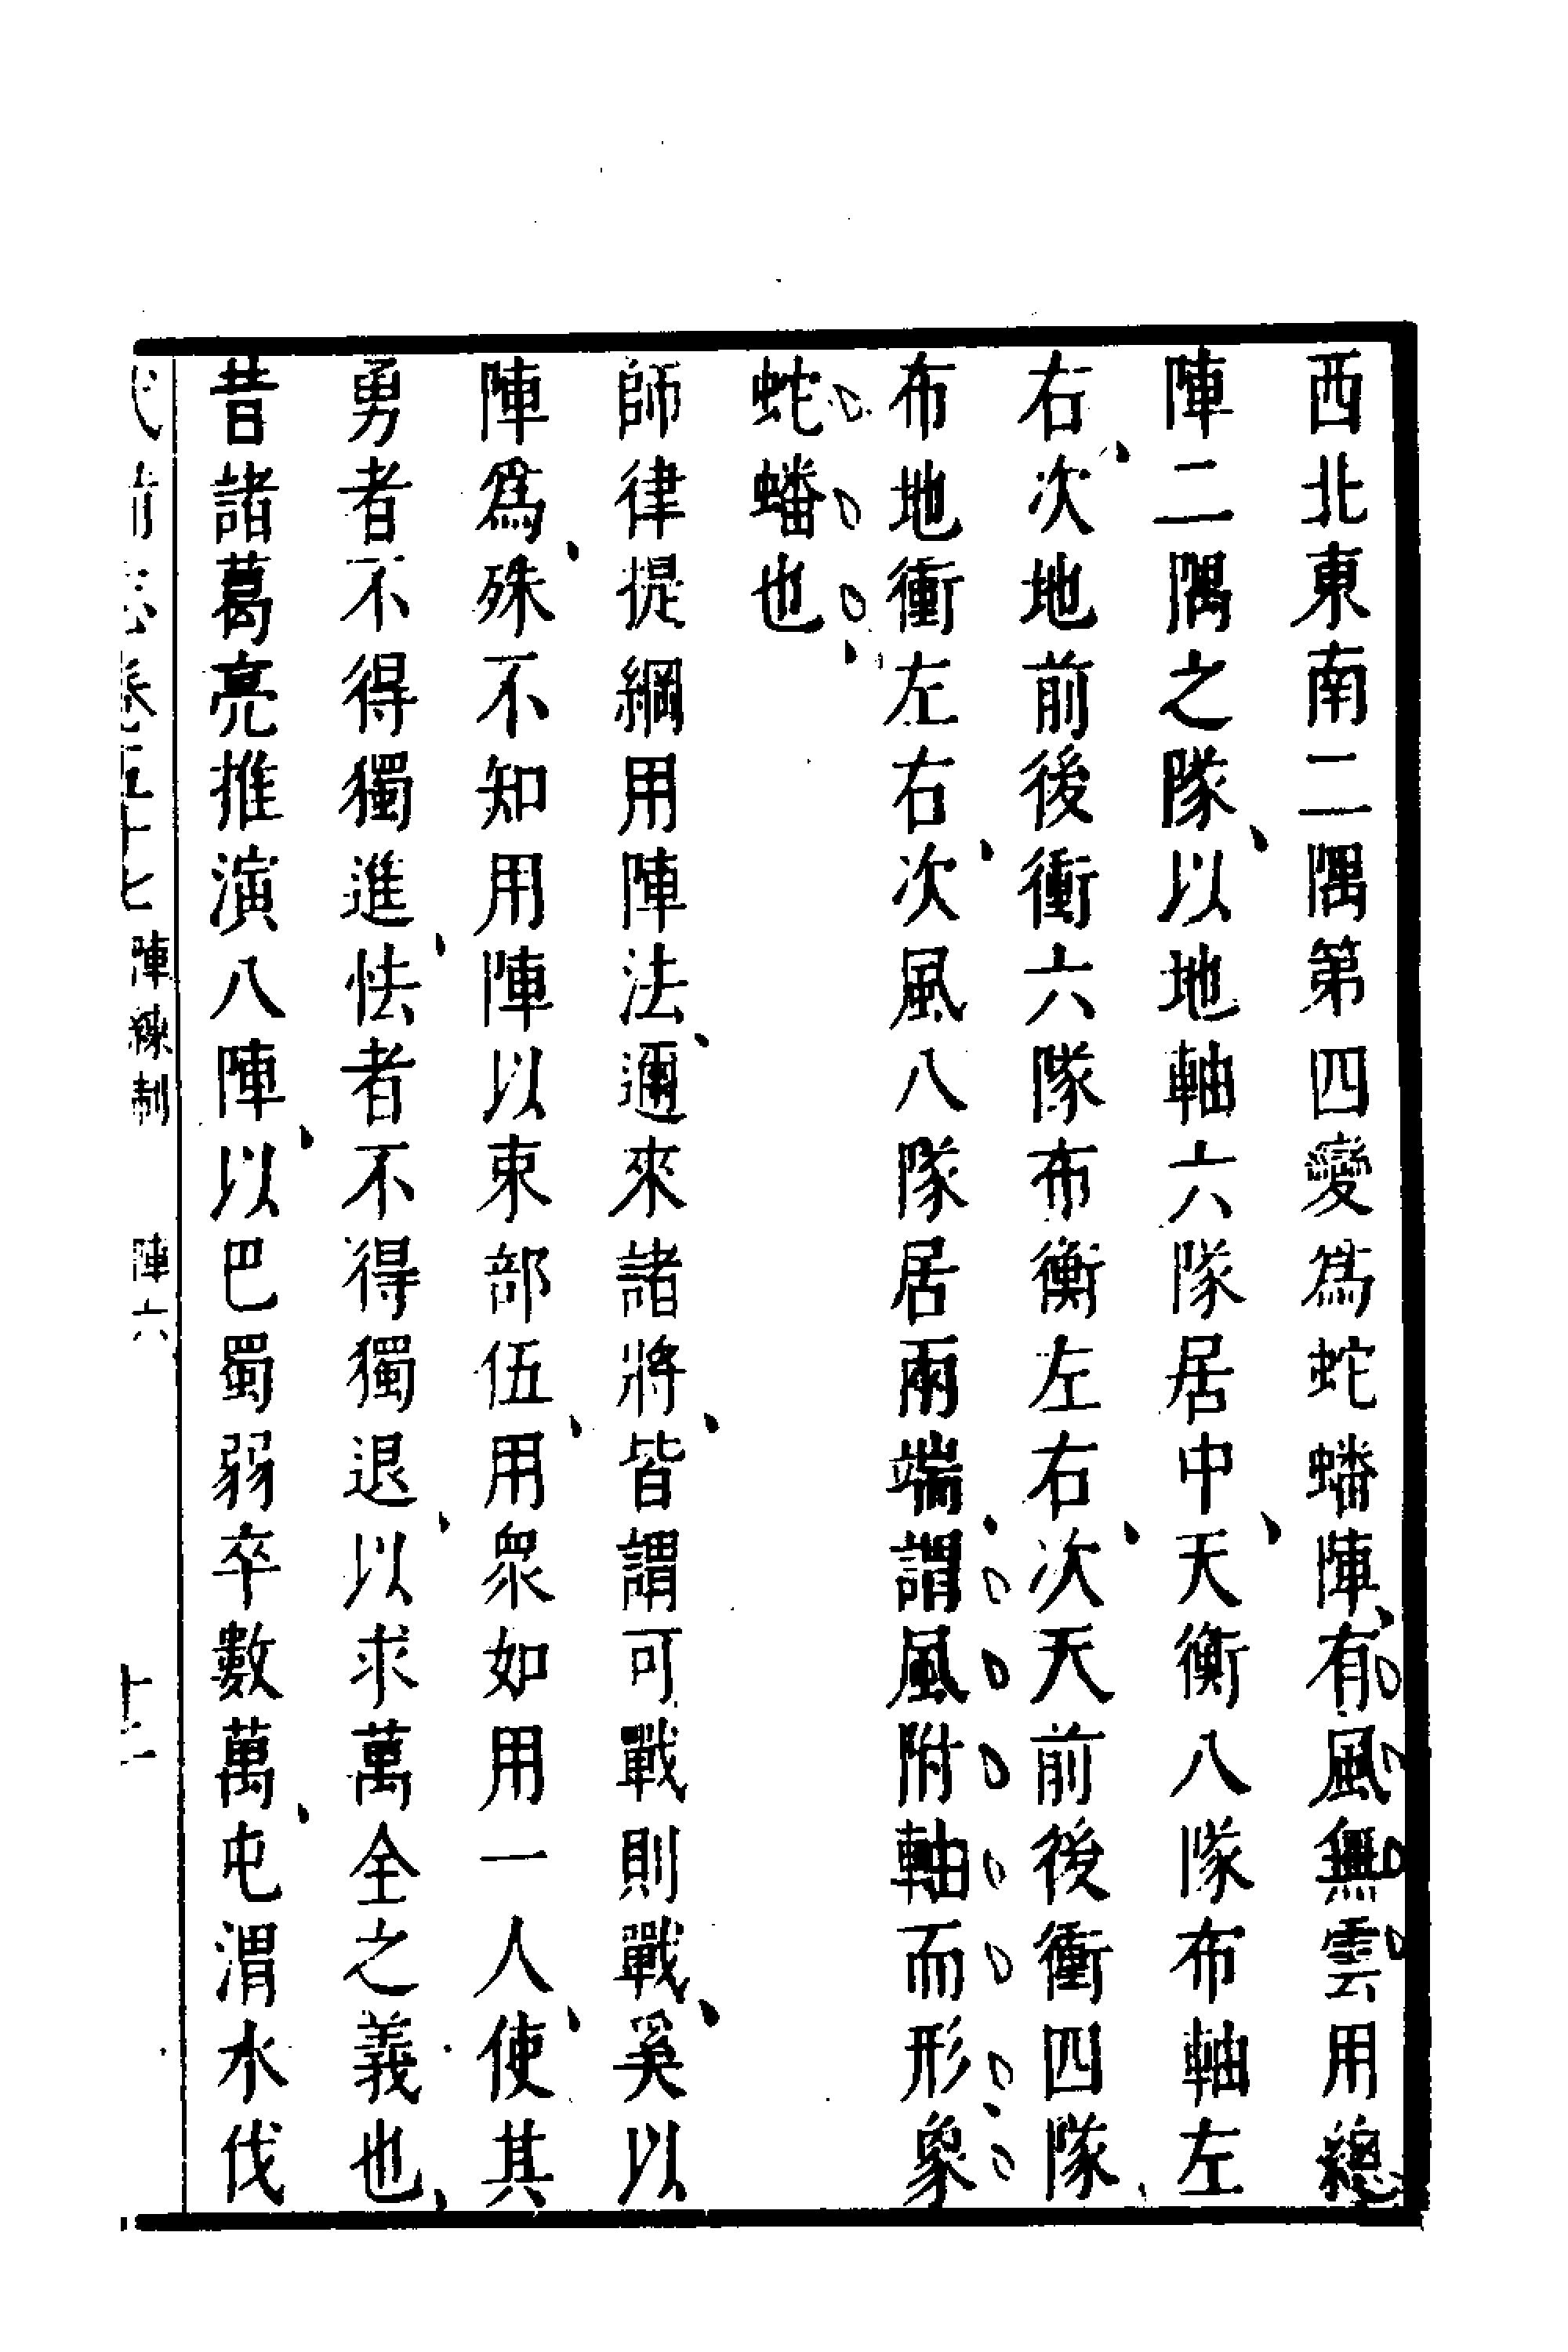 西北東南二隅第四變爲蛇蟠陣有風無雲用總
陣二隅之隊以地軸六隊居中天衡八隊布軸左
右次地前後衝六隊布衡左右次天前後衝四隊
布地衝左右次風八隊居兩端謂風附軸而形象
蛇蟠也
師律提綱用陣法邇來諸將皆謂可戰則戰奚以
陣爲殊不知用陣以束部伍用衆如用一人使其
勇者不得獨進怯者不得獨退以求萬全之義也
昔諸葛亮推演八陣以巴蜀弱卒數萬屯渭水伐
卷五十七 陣練制 陣六